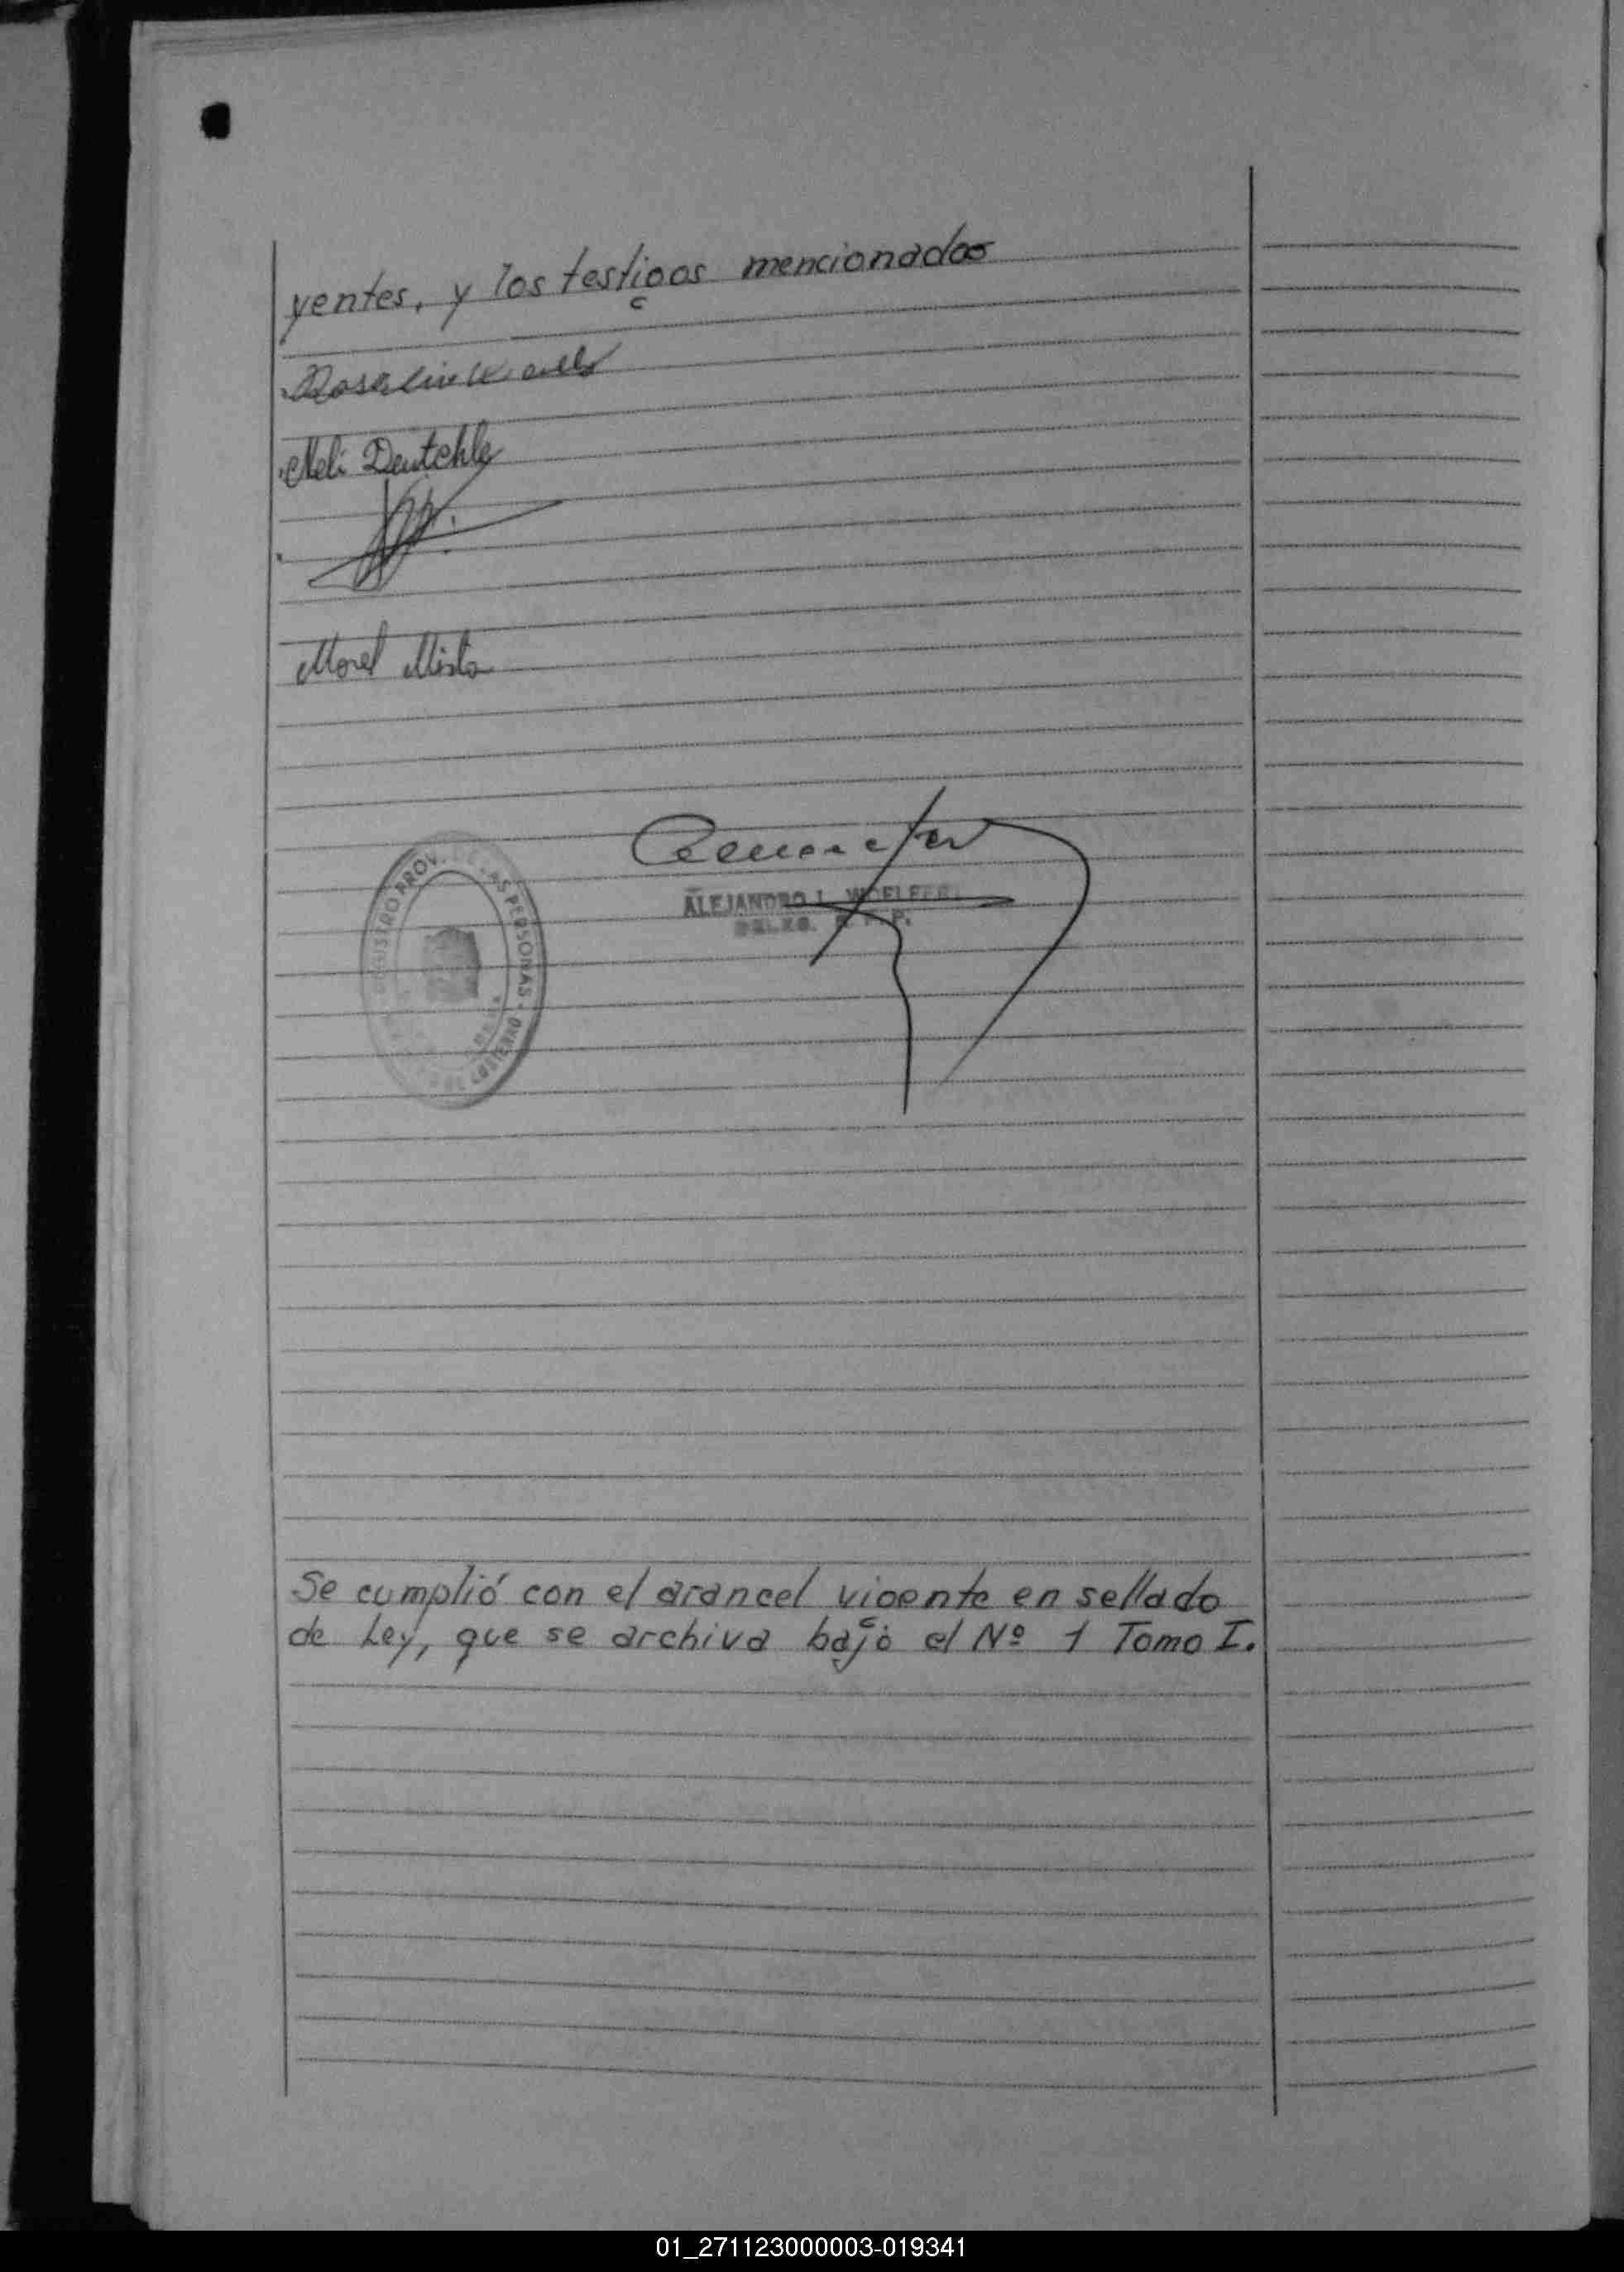 yentes, y los testigos mencionados
Neli Deutchle
Morel Mirta
REGISTRO PROV. DE LAS PERSONAS - GOBIERNO
ALEJANDRO L. WOELFERT
DELEG. R. P. P.
Se cumplió con el arancel vigente en sellado
de Ley, que se archiva bajo el Nº 1 Tomo I.
01_271123000003-019341